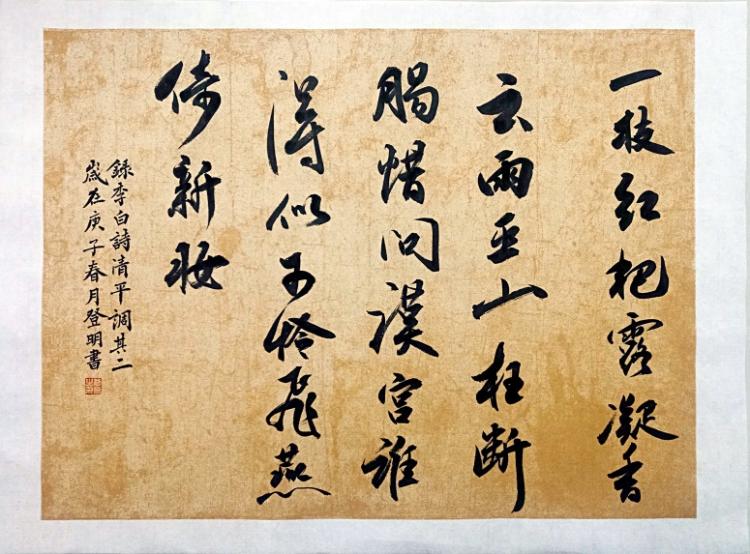 一枝红艳露凝香
云雨巫山枉断
腸借问漢宫誰
得似可怜飛燕
倚新妝
録李白詩清平調其二
歲在庚子春月登明書